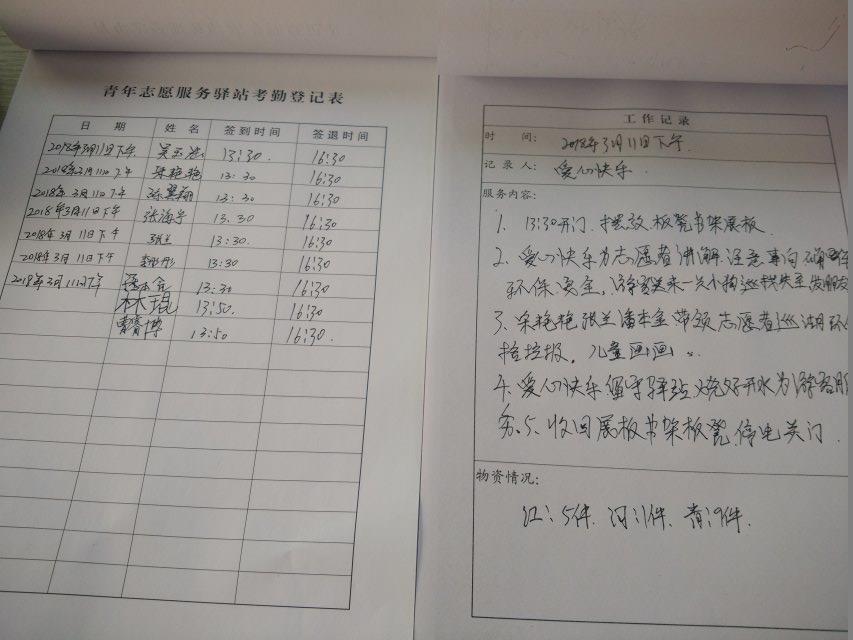 青年志愿服务驿站考勤登记表
日 期 姓 名 签到时间 签退时间
2018年3月11日下午 13:30. 16:30
2018年3月11日下午 朱艳艳 13:30 16:30
2018年3月11日下午 13:30 16:30
2018年3月11日下午 张海宁 13.30 16:30
2018年3月11日下午 张兰 13:30. 16:30
2018年3月11日下午 13:30 16:30
2018年3月11日下午 潘本金 13:30 16:30
林琨 13:50. 16:30
曹睿博 13:50 16:30.
工作记录
时 间: 2018年3月11日下午.
记录人: 爱心快乐.
服务内容:
1. 13:30开门.摆放.板凳书架展板.
2. 爱心快乐为志愿者讲解.注意事向
环保.安全.游客送来一只小狗
3. 朱艳艳 张兰 潘本金 带领志愿者巡湖环
捡垃圾. 儿童画画
4. 爱心快乐留守驿站.烧好开水为游客服
务.5、收回展板书架板凳.停电关门.
物资情况:
红:5件. 河:1件. 青:9件.